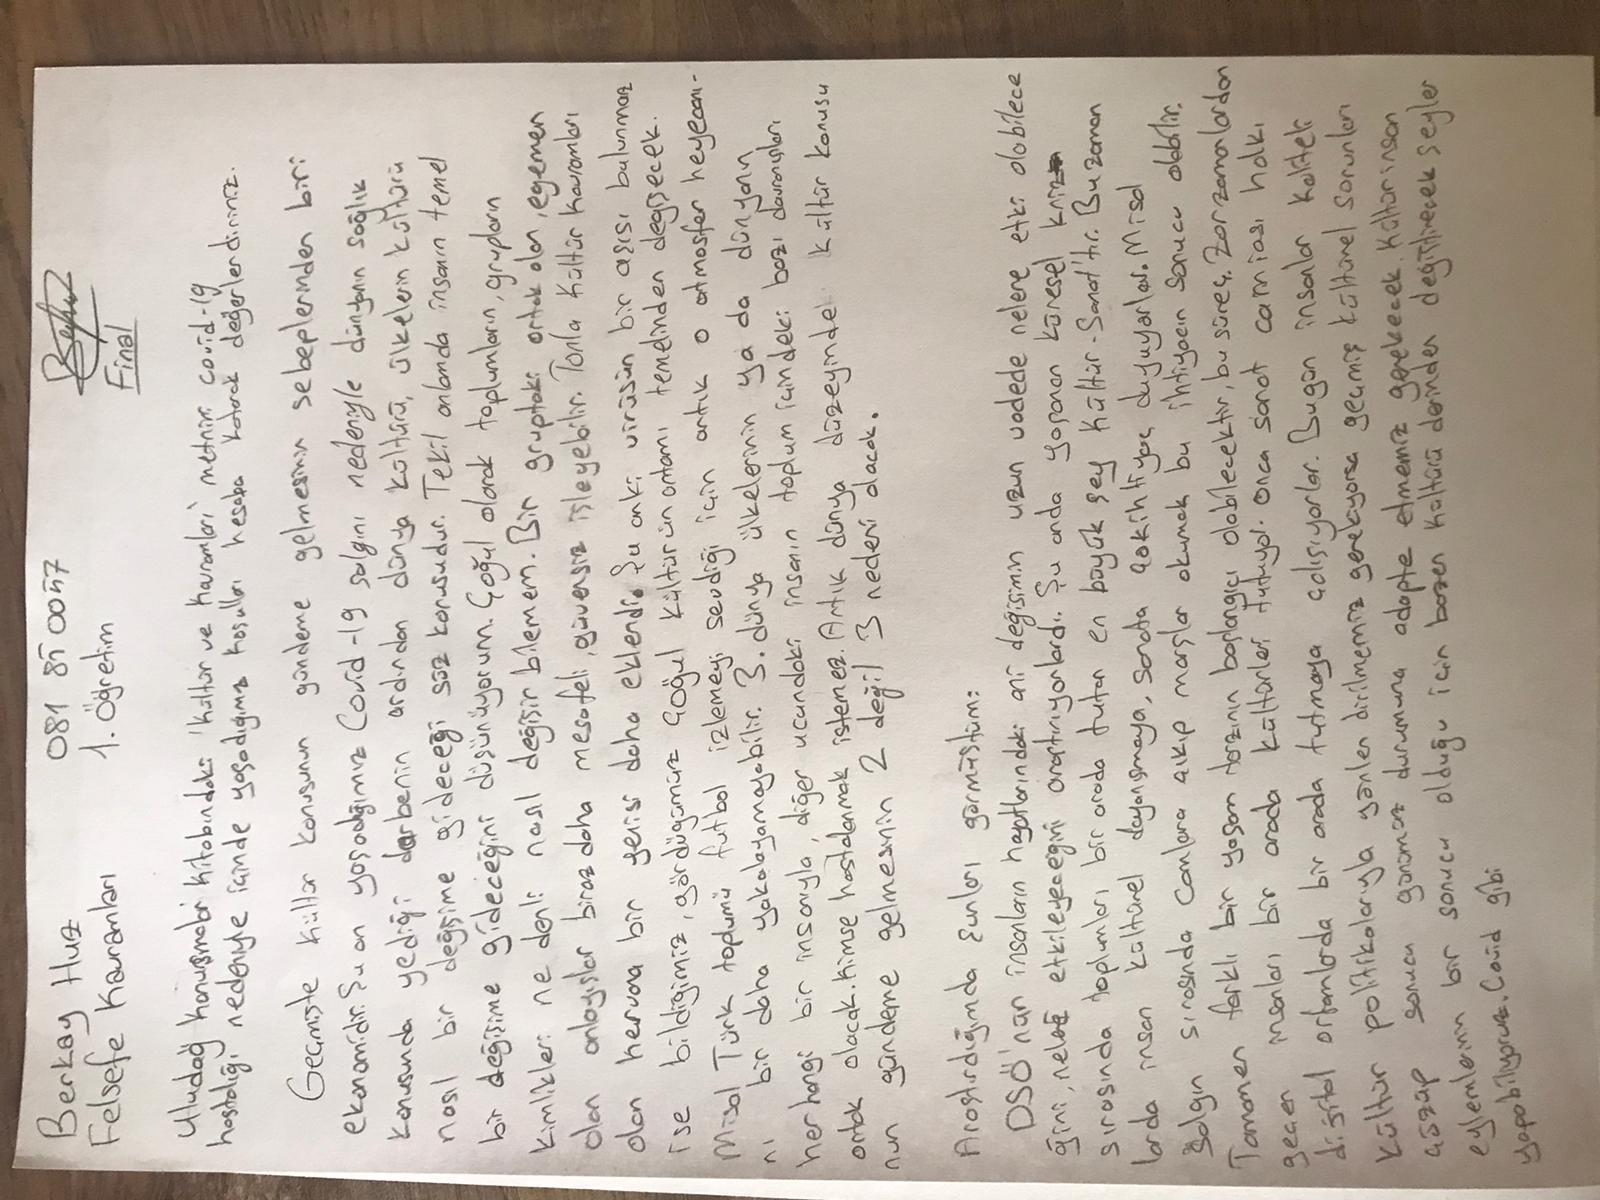 Berkay Huz 081 85 0047
Felsefe Kavramları 1. Öğretim Final
Uludağ konuşmaları kitabındaki 'kültür ve kavramları' metnini covid-19
hastalığı nedeniyle içinde yaşadığımız koşulları hesaba katarak değerlendiriniz.
Geçmişte kültür konusunun gündeme gelmesinin sebeplerinden biri
ekonomidir. Şu an yaşadığımız Covid-19 salgını nedeniyle dünyanın sağlık
konusunda yediği darbenin ardından dünya kültürü, ülkelerin kültürü
nasıl bir değişime gideceği söz konusudur. Tekil anlamda insanın temel
bir değişime gideceğini düşünüyorum. Çoğul olarak toplumların, grupların
kimlikleri ne denli nasıl değişir bilemem. Bir gruptaki ortak olan, egemen
olan anlayışlar biraz daha mesafeli, güvensiz işleyebilir. Tonla kültür kavramları
olan havuza bir yenisi daha eklendi. Şu anki virüsün bir aşısı bulunmaz
ise bildiğimiz, gördüğümüz çoğul kültürün ortamı temelinden değişecek.
Misal Türk toplumu futbol izlemeyi sevdiği için artık o atmosfer heyecanı-
nı bir daha yakalayamayabilir. 3. dünya ülkelerinin ya da dünyanın
herhangi bir insanıyla, diğer ucundaki insanın toplum içindeki bazı davranışları
ortak olacak. Kimse hastalanmak istemez. Artık dünya düzeyinde kültür konusu
nun gündeme gelmesinin 2 değil 3 nedeni olacak.
Araştırdığımda şunları görmüştüm:
DSÖ'nün insanların hayatlarındaki ani değişimin uzun vadede nelere etki olabilece
ğini, nelere etkileyeceğini araştırıyorlardı. Şu anda yaşanan küresel kriz
sırasında toplumları bir arada tutan en büyük şey Kültür-Sanat'tır. Bu zaman
larda insan kültürel dayanışmaya, sanata çok ihtiyaç duyuyorlar. Misal
salgın sırasında camlara çıkıp marşlar okumak bu ihtiyacın sonucu olabilir.
Tamamen farklı bir yaşam tarzının başlangıcı olabilecektir, bu süreç. Zor zamanlardan
geçen insanları bir arada kültürleri tutuyor. Onca sanat camiası halkı
dijital ortamlarda bir arada tutmaya çalışıyorlar. Bugün insanlar kaliteli
kültür politikalarıyla yönlendirilmemiz gerekiyorsa geçmiş kültürel sorunları
çözüp sonucu günümüz durumuna adapte etmemiz gerekecek. Kültür insan
eylemlerinin bir sonucu olduğu için bazen kültürü derinden değiştirecek şeyler
yapabiliyoruz. Covid gibi